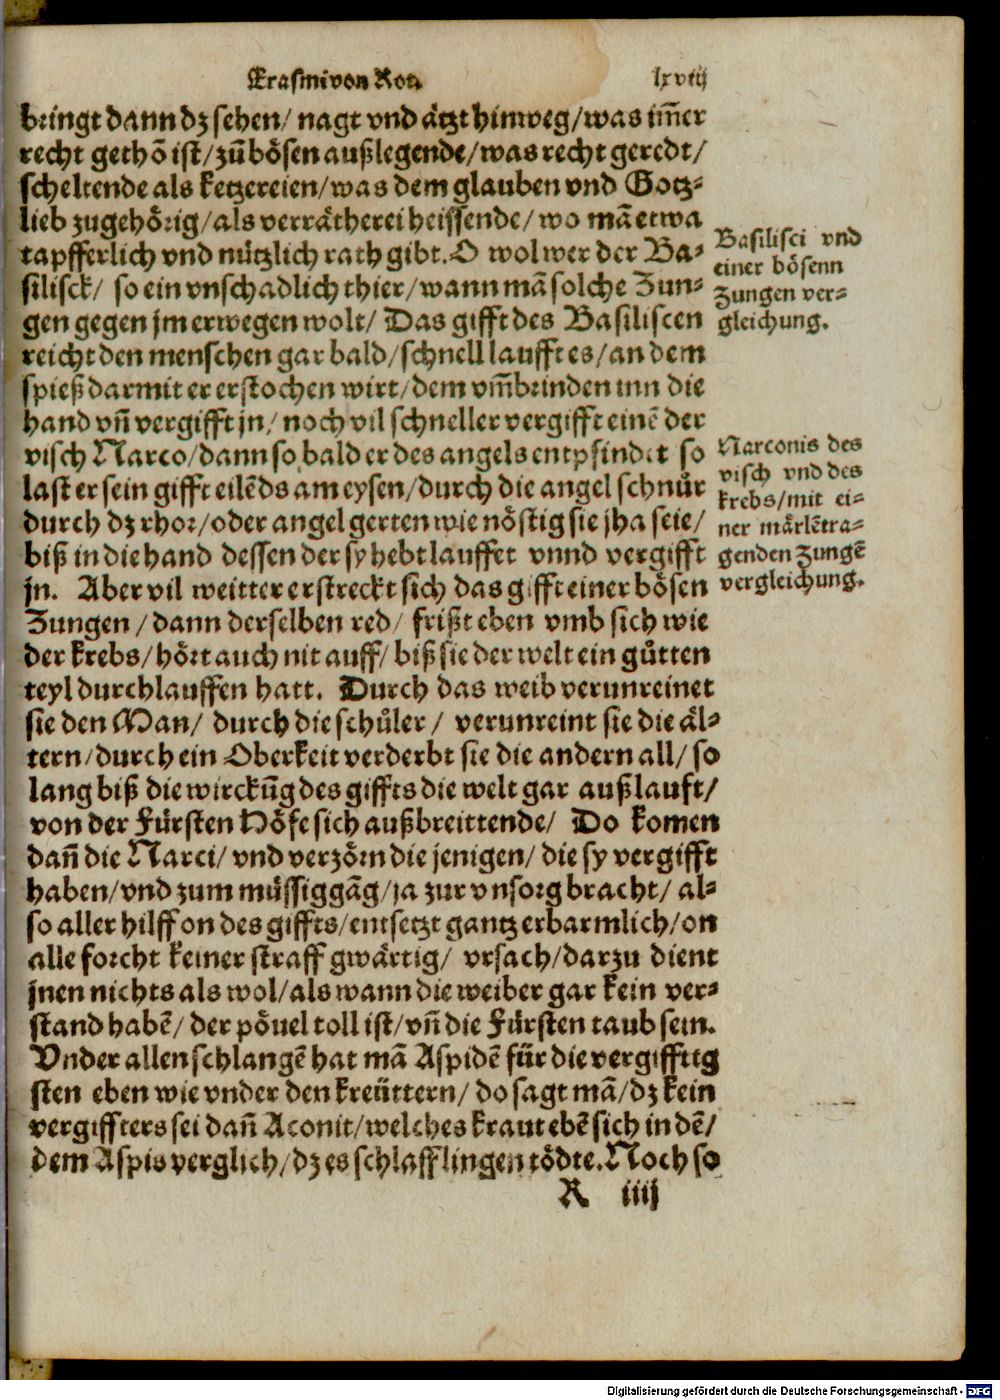 Erasmi von Rot.
lxviij
bringt dann dz sehen/ nagt vnd ätzt hinweg/was im̃er
recht gethõ ist/zů bösen außlegende/was recht geredt/
scheltende als ketzereien/was dem glauben vnd Gotz-
lieb zugehörig/als verrätherei heissende/ wo mã etwa
tapfferlich vnd nützlich rath gibt. O wol wer der Ba-
silisck/ so ein vnschadlich thier/wann mã solche Zun-
gen gegen jm erwegen wolt/ Das gifft des Basiliscen
reicht den menschen gar bald/schnell laufft es/an dem
spieß darmit er erstochen wirt/dem vm̃brinden inn die
hand vñ vergifft jn/ noch vil schneller vergifft einẽ der
visch Narco/dann so bald er des angels entpfindet so
last er sein gifft eilẽds am eysen/durch die angel schnůr
durch dz rhor/oder angel gerten wie nöstig sie jha seie/
biß in die hand dessen der sy hebt lauffet vnnd vergifft
jn. Aber vil weitter erstreckt sich das gifft einer bösen
Zungen/ dann derselben red/ frißt eben vmb sich wie
der krebs/hört auch nit auff/ biß sie der welt ein gůtten
teyl durchlauffen hatt. Durch das weib verunreinet
sie den Man/ durch die schůler/ verunreint sie die äl-
tern/durch ein Oberkeit verderbt sie die andern all/ so
lang biß die wirckũg des giffts die welt gar außlauft/
von der Fürsten Höfe sich außbreittende/ Do komen
dañ die Narci/ vnd verzörn die jenigen/ die sy vergifft
haben/vnd zum müssiggãg/ja zur vnsorg bracht/ al-
so aller hilff on des giffts/entsetzt gantz erbarmlich/on
alle forcht keiner straff gwärtig/ vrsach/darzu dient
jnen nichts als wol/als wann die weiber gar kein ver-
stand habẽ/ der pöuel toll ist/vñ die Fürsten taub sein.
Vnder allen schlangẽ hat mã Aspidẽ für die vergifftig
sten eben wie vnder den kreüttern/ do sagt mã/dz kein
vergiffters sei dañ Aconit/welches kraut ebẽ sich in dẽ/
dem Aspis verglich/dz es schlafflingen tödte. Noch so
R iiij
Basilisci vnd
einer bösenn
Zungen ver-
gleichung.
Narconis des
visch vnd des
krebs/mit ei-
ner märlẽtra-
genden Zungẽ
vergleichung.
Digitalisierung gefördert durch die Deutsche Forschungsgemeinschaft - DFG